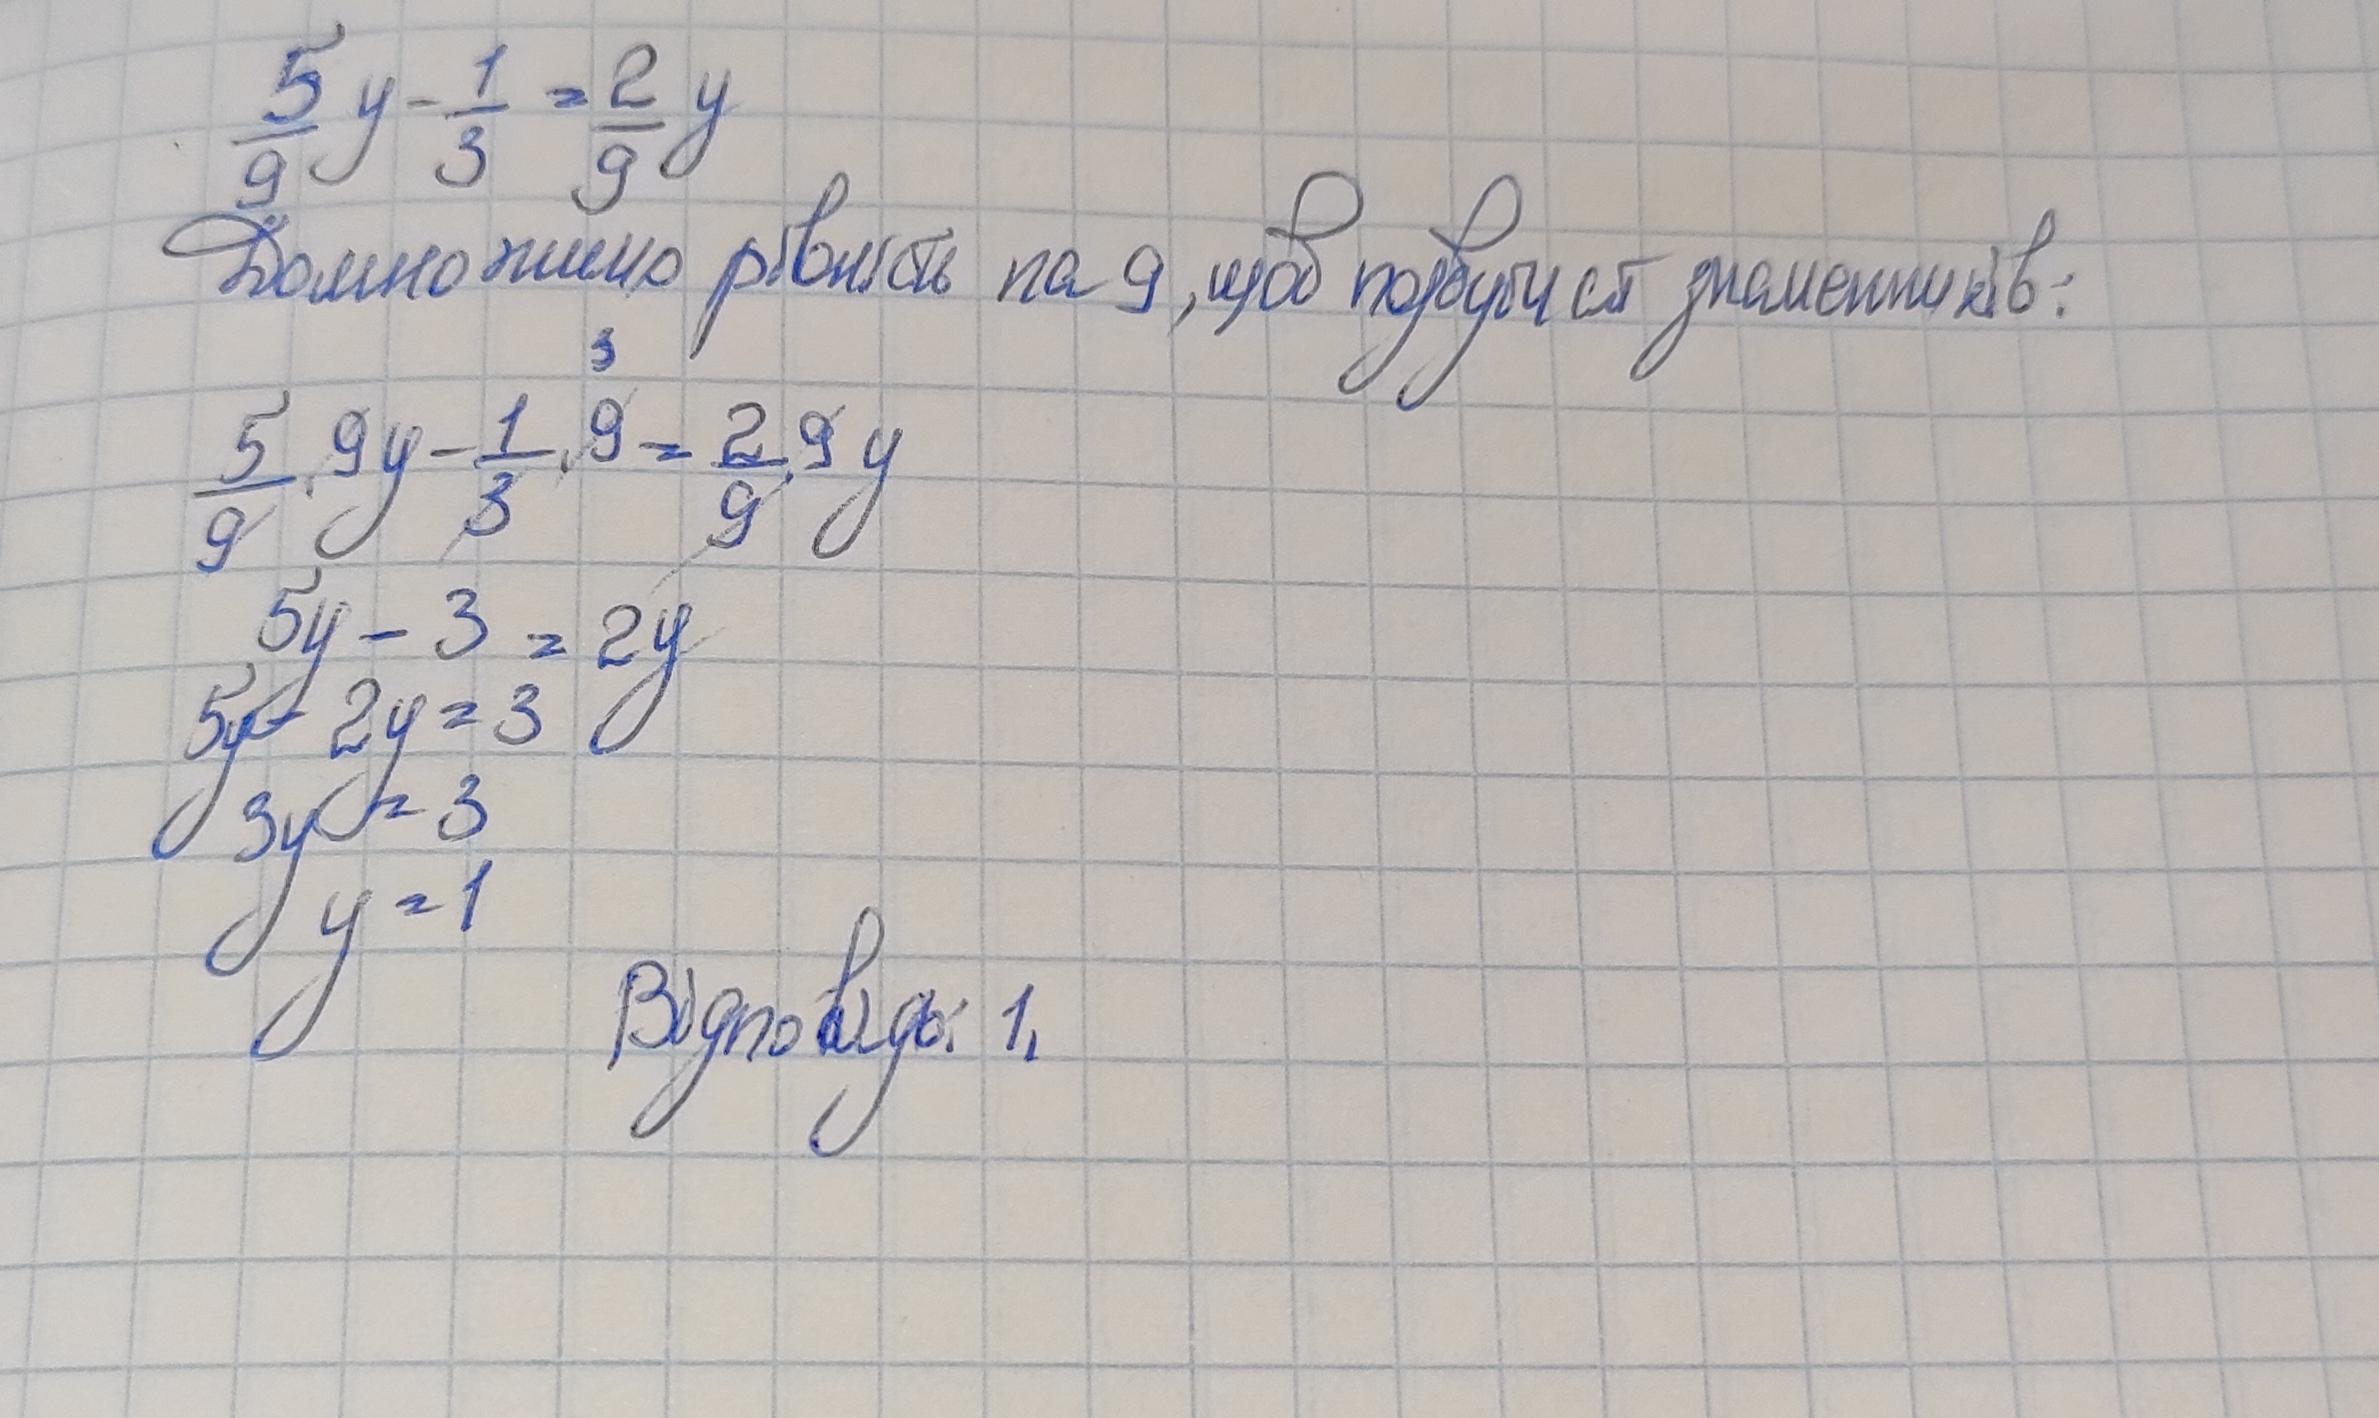 5/9 y - 1/3 = 2/9 y
Домножимо рівність на 9, щоб позбутися знаменників:
5/9 · 9y - 1/3 · 9 3 = 2/9 · 9y
5y - 3 = 2y
5y - 2y = 3
3y = 3
y = 1
Відповідь: 1.